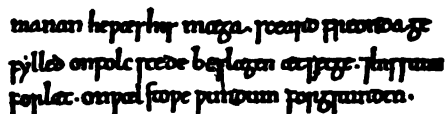 manan heƿæs her mæga. sceard freonda ge
fylled onfolc stede beslagen ætsecge. ⁊hissunu
forlæt. onƿæl stoƿe ƿundum forgrunden.